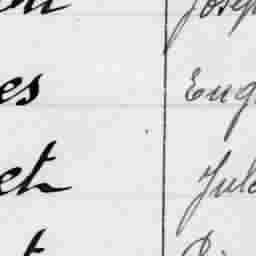 on Josep
es Eug
et Jule
t